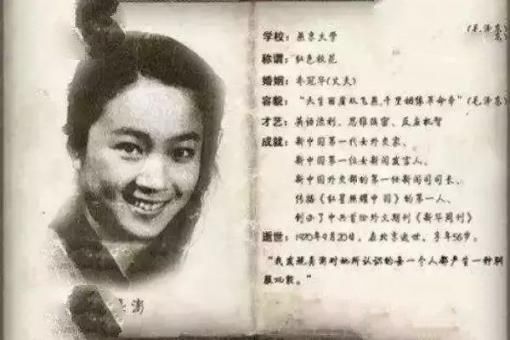 (毛泽东)
学校：燕京大学
称谓：红色校花
婚姻：乔冠华(丈夫)
容貌：“天生丽质双飞燕,千里姻缘革命牵”(毛泽东)
才艺：英语流利、思维缜密、反应机智
成就：新中国第一代女外交家、
新中国第一位女新闻发言人、
新中国外交部的第一任新闻司司长、
传播《红星照耀中国》的第一人、
创办了中共首份外文期刊《新华周刊》
逝世：1970年9月20日，在北京逝世，享年56岁。
“我发现龚澎对她所认识的每一个人都产生一种驯
服功能。”
澎